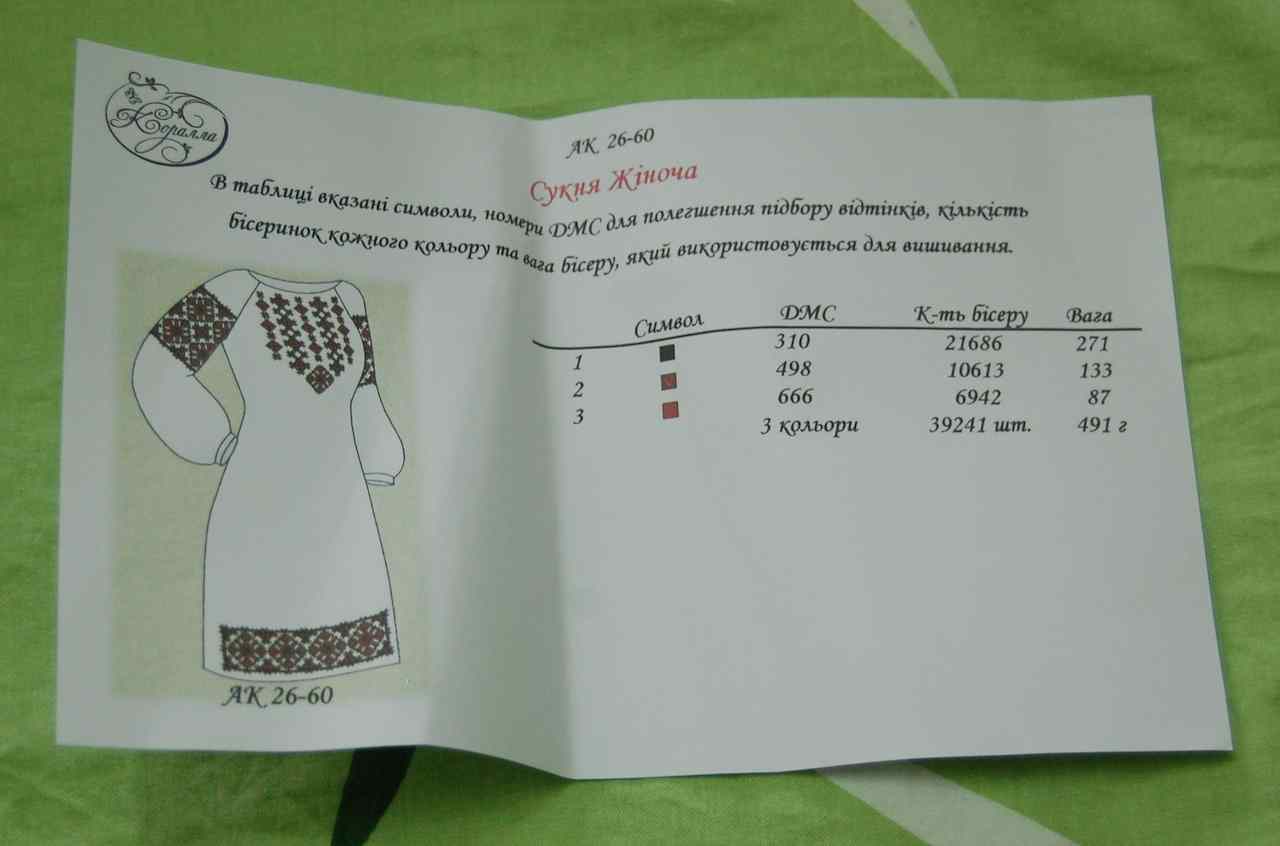 Коралла
АК 26-60
Сукня Жіноча
В таблиці вказані символи, номери DMC для полегшення підбору відтінків, кількість
бісеринок кожного кольору та вага бісеру, який використовується для вишивання.
Символ DMC К-ть бісеру Вага
1 310 21686 271
2 498 10613 133
3 666 6942 87
3 кольори 39241 шт. 491 г
АК 26-60